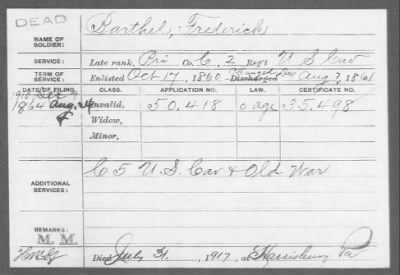 DEAD
NAME OF SOLDIER: Barthel, Frederick
SERVICE: Late rank, Pri Co. C, 2 Reg't U S Cav
TERM OF SERVICE: Enlisted Oct 17, 1860 Discharged Aug, 1861
DATE OF FILING. CLASS. APPLICATION NO. LAW. CERTIFICATE NO.
1864 Aug. 24 Invalid, 50.418 o age 35.498
Widow,
Minor,
ADDITIONAL SERVICES: C 5 U.S. Cav & Old War
REMARKS: M. M.
Died July 31, 1917, at Harrisburg Pa